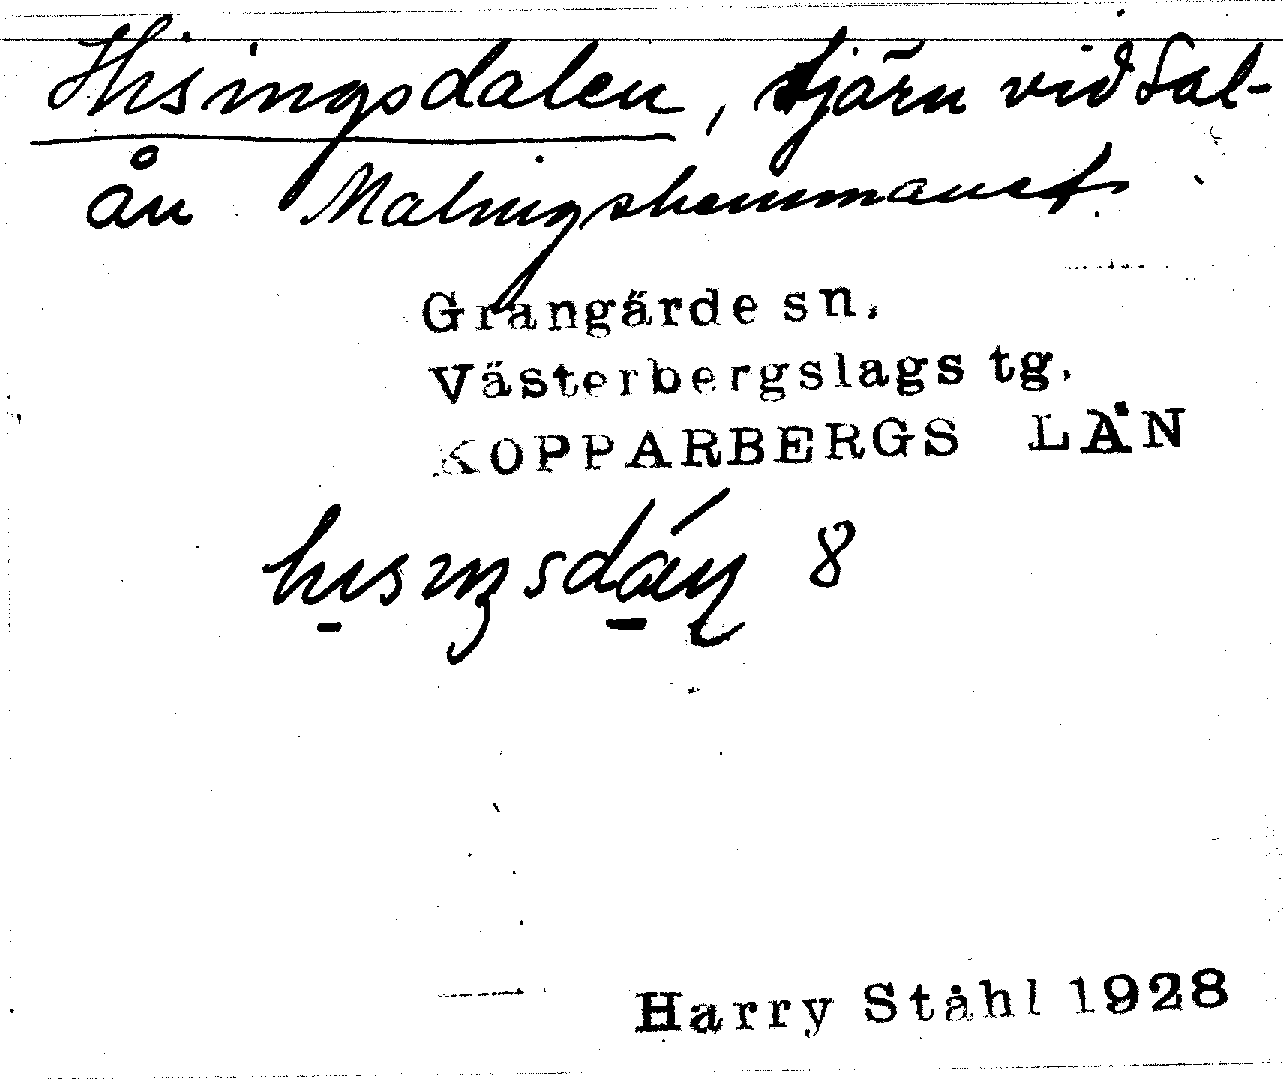 Hisingsdalen, tjärn vid Sal-
ån Malingshemmanet.
Grangärde sn.
Västerbergslags tg.
KOPPARBERGS LÄN
8
Harry Ståhl 1928